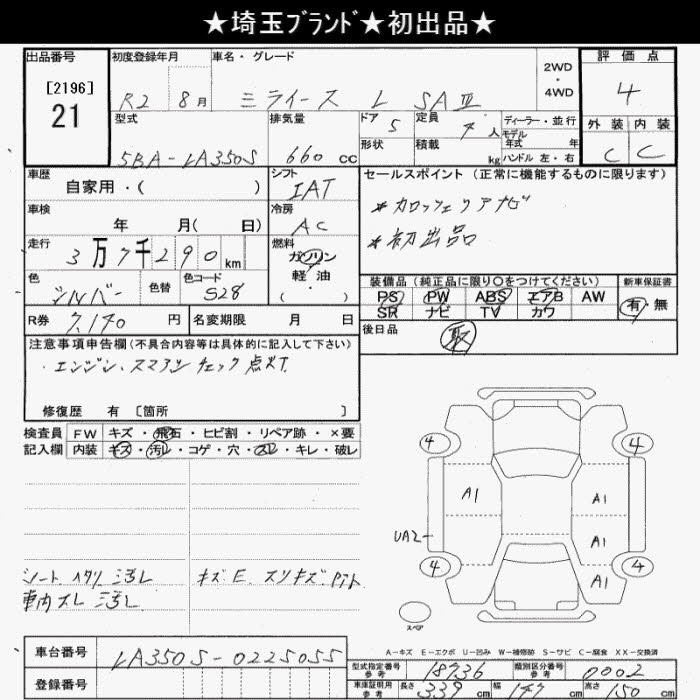 ★埼玉ﾌﾞﾗﾝﾄﾞ★初出品★
出品番号 初度登録年月 車名・グレード 評価点
[2196] 21
R2 8月 ミライース L SAⅢ 2WD・4WD 4
型式 排気量 ドア 5 定員 4人 ディーラー・並行 外装 内装
モデル年式 年
5BA-LA350S 660cc 形状 積載 kg ハンドル 左・右 C C
車歴 シフト セールスポイント(正常に機能するものに限ります)
自家用・( ) IAT
＊カロッツェリアナビ
車検 冷房
年 月( 日) AC
＊初出品
走行 3万7千290km 燃料 ガソリン 軽・油 ・( )
色 シルバー 色替 色コード S28
装備品(純正品に限り○をつけてください) 新車保証書
PS PW ABS エアB AW 有・無
SR ナビ TV カワ
R券 7,140円 名変期限 月 日
後日品 取
注意事項申告欄(不具合内容等は具体的に記入して下さい)
・エンジン、スマアシ チェック点灯
修復歴 有 [箇所 ]
検査員 FW キズ・飛石・ヒビ割・リペア跡・×要
記入欄 内装 キズ・汚レ・コゲ・穴・スレ・キレ・破レ
4 4
A1 A1
UA2 A1
4 A1 4
シート ヘタリ 汚レ キズ E スリキズ
車内スレ 汚レ
スペア
A-キズ E-エクボ U-凹み W-補修跡 S-サビ C-腐食 XX-交換済
車台番号 LA350S-0225055
型式指定番号 参考 18736 類別区分番号 参考 0002
登録番号
車庫証明用 参考 長さ 339cm 幅 147cm 高さ 150cm